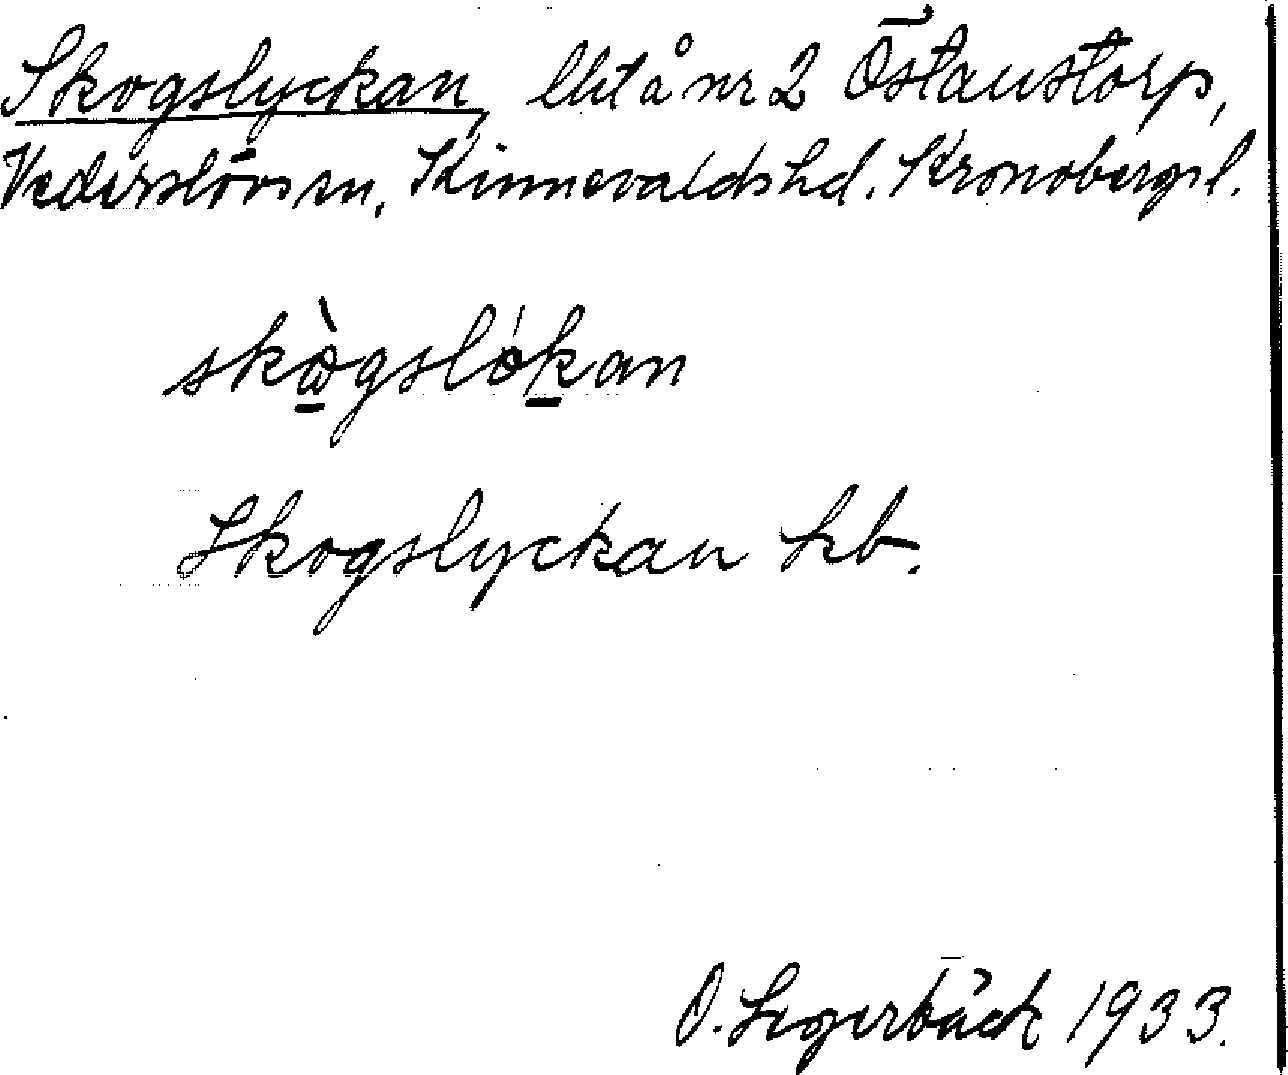 Skogslyckan, lht å nr 2 Östanstorp,
Vederslövs sn, Kinnevalds hd. Kronobergs l.
skògslókan
Skogslyckan kb.
O. Segerbäck 1933.